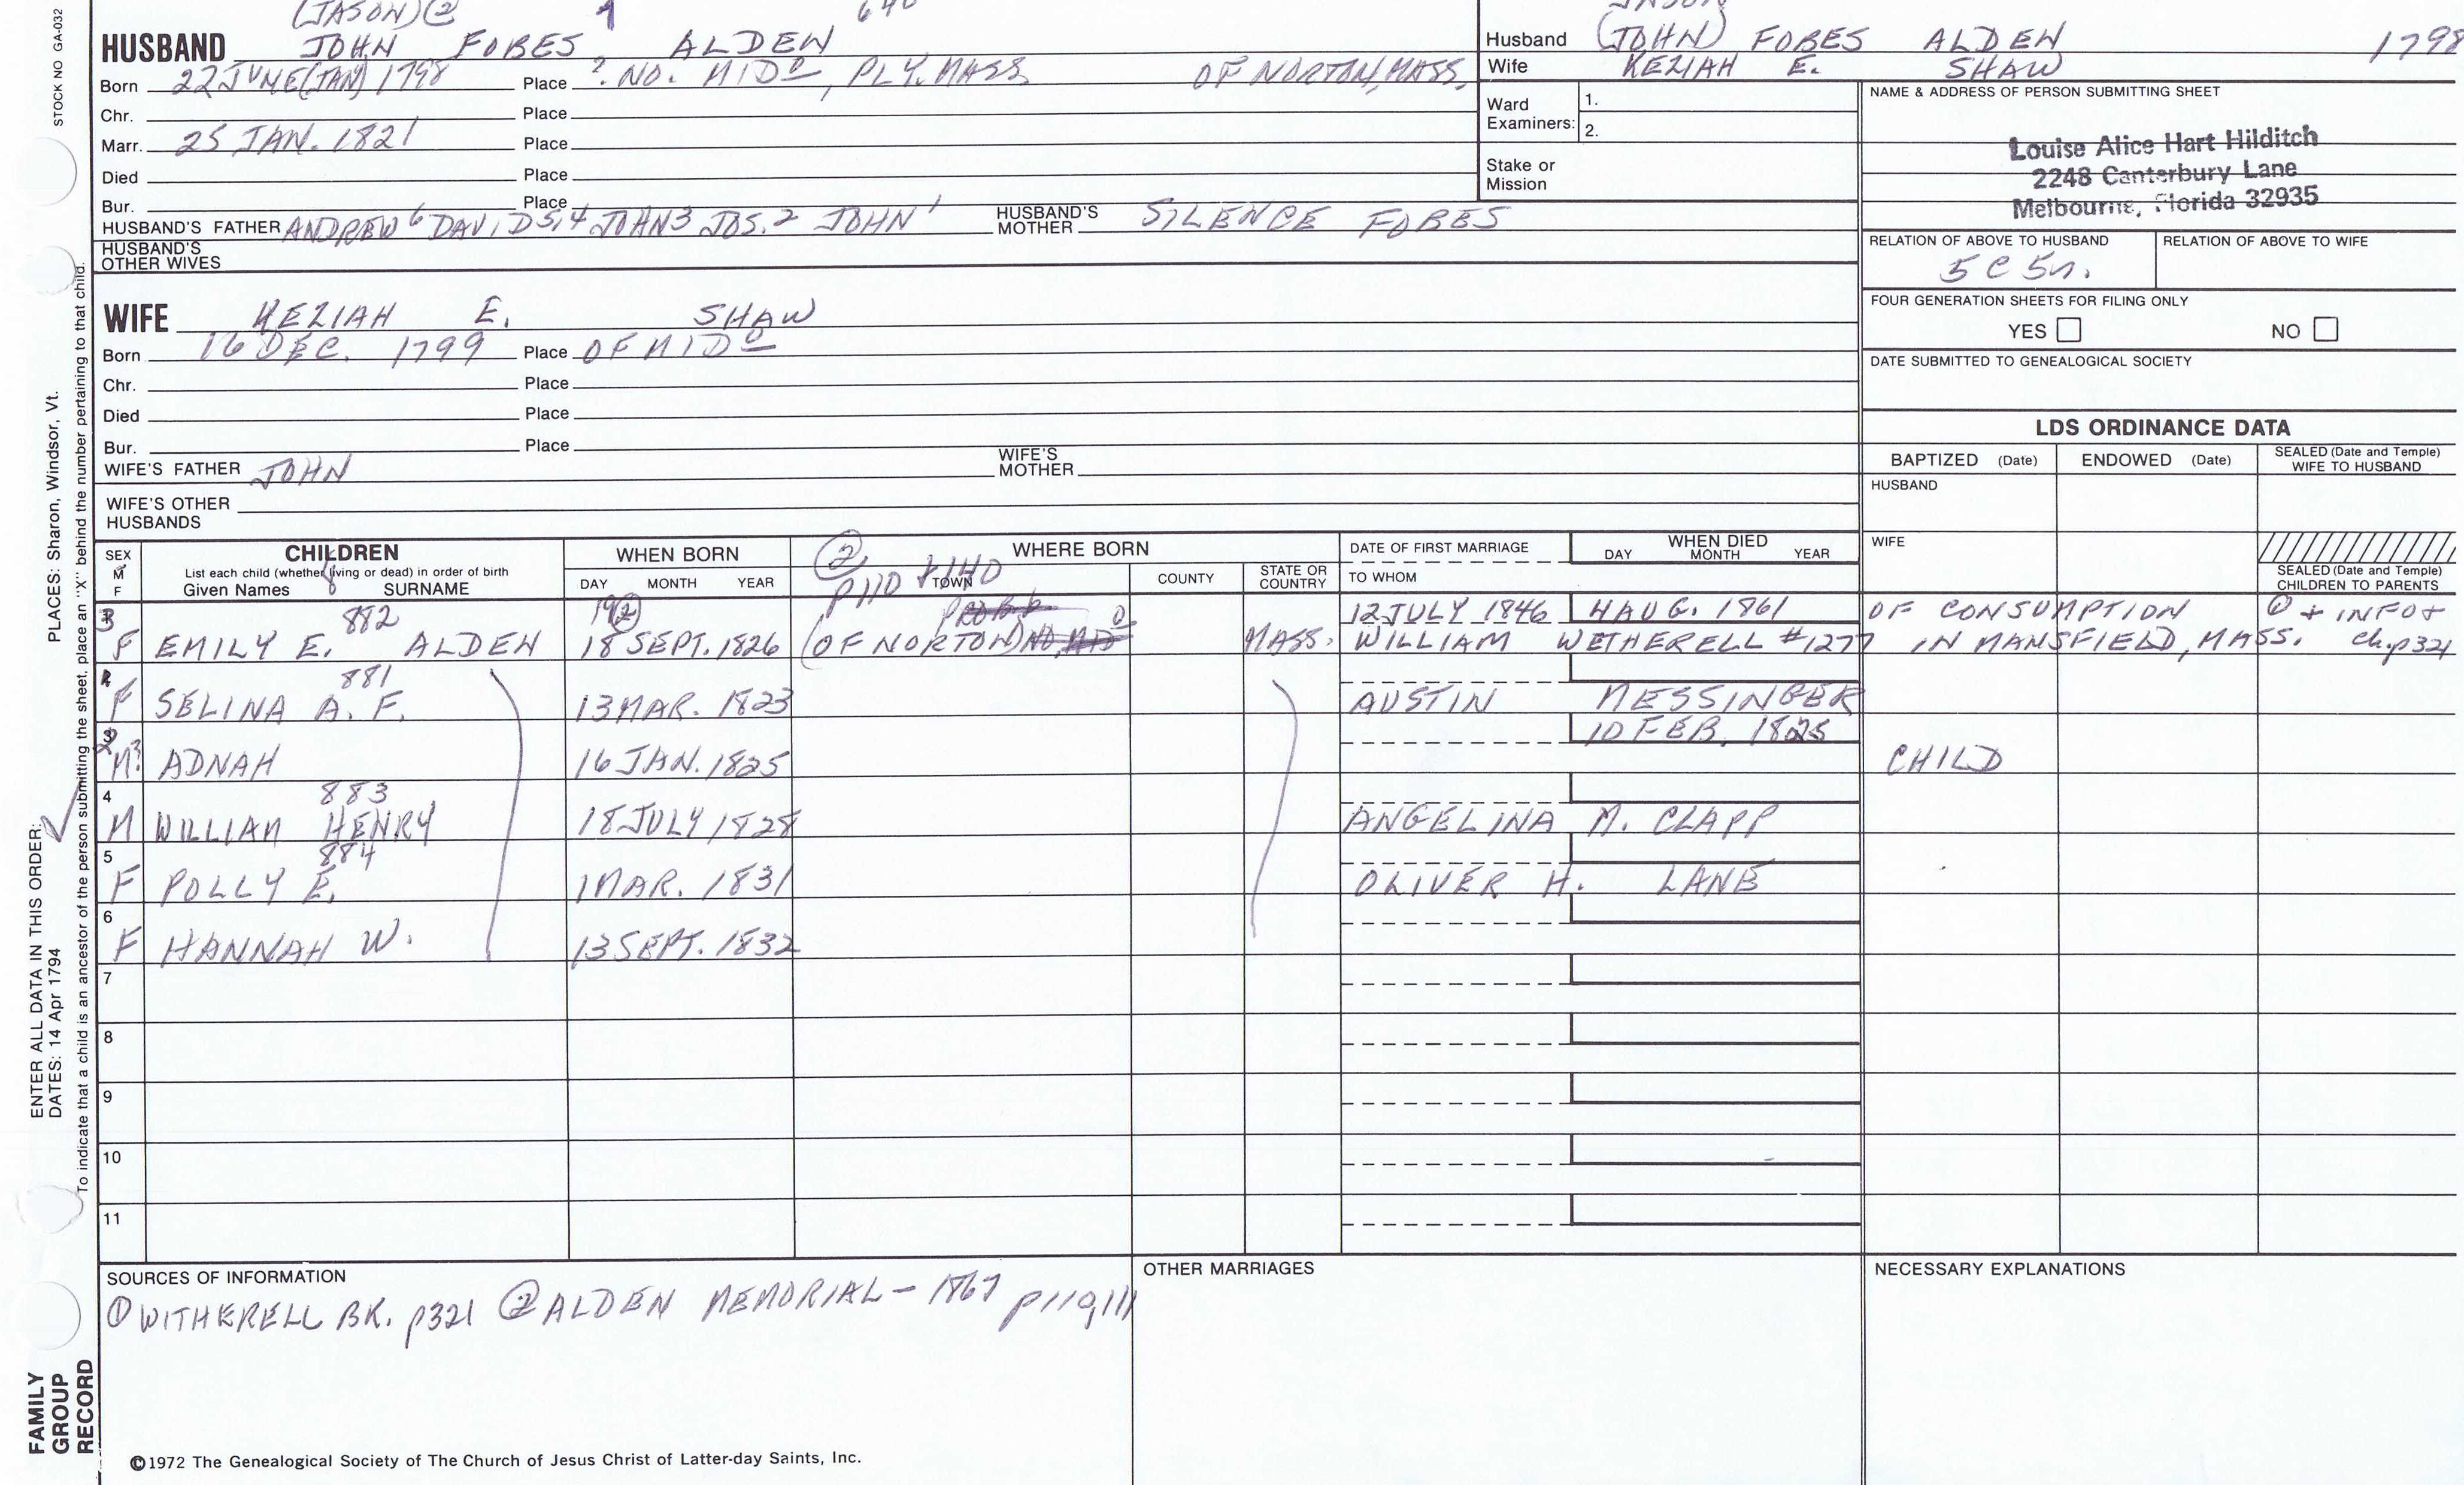 STOCK NO GA-032
(JASON) ②
HUSBAND JOHN FOBES ALDEN
Born 22 JUNE (JAN) 1798 Place ? NO. MIDO, PLY. MASS OF NORTON, MASS.
Chr. Place
Marr. 25 JAN. 1821 Place
Died Place
Bur. Place
HUSBAND'S FATHER ANDREW6 DAVID5,4 JOHN3 JOS.2 JOHN1 HUSBAND'S MOTHER SILENCE FOBES
HUSBAND'S OTHER WIVES
WIFE KEZIAH E. SHAW
Born 16 DEC. 1799 Place OF MIDO
Chr. Place
Died Place
Bur. Place
WIFE'S FATHER JOHN WIFE'S MOTHER
WIFE'S OTHER HUSBANDS
Husband (JOHN) FOBES ALDEN 1798
Wife KEZIAH E. SHAW
Ward Examiners: 1.
2.
Stake or Mission
NAME & ADDRESS OF PERSON SUBMITTING SHEET
Louise Alice Hart Hilditch
2248 Canterbury Lane
Melbourne, Florida 32935
RELATION OF ABOVE TO HUSBAND RELATION OF ABOVE TO WIFE
5C 5r.
FOUR GENERATION SHEETS FOR FILING ONLY
YES NO
DATE SUBMITTED TO GENEALOGICAL SOCIETY
LDS ORDINANCE DATA
BAPTIZED (Date) ENDOWED (Date) SEALED (Date and Temple) WIFE TO HUSBAND
HUSBAND
WIFE
SEALED (Date and Temple) CHILDREN TO PARENTS
SEX M F
CHILDREN
List each child (whether living or dead) in order of birth
Given Names SURNAME
WHEN BORN
DAY MONTH YEAR
WHERE BORN
② p110 + 140
TOWN COUNTY STATE OR COUNTRY
DATE OF FIRST MARRIAGE
TO WHOM
WHEN DIED
DAY MONTH YEAR
3 882 19② 12 JULY 1846 4 AUG. 1861 OF CONSUMPTION ① + INFO +
F EMILY E. ALDEN 18 SEPT. 1826 (OF NORTON) MASS. WILLIAM WETHERELL #1277 IN MANSFIELD, MASS. ch. p321
881
F SELINA A. F. 13 MAR. 1823 AUSTIN MESSINGER
3 2 10 FEB. 1825
M? ADNAH 16 JAN. 1825 CHILD
4 883
M WILLIAM HENRY 18 JULY 1828 ANGELINA M. CLAPP
5 884
F POLLY E. 1 MAR. 1831 OLIVER H. LANE
6
F HANNAH W. 13 SEPT. 1832
7
8
9
10
11
SOURCES OF INFORMATION
① WITHERELL BK. p321 ② ALDEN MEMORIAL - 1867 p110,111
OTHER MARRIAGES
NECESSARY EXPLANATIONS
©1972 The Genealogical Society of The Church of Jesus Christ of Latter-day Saints, Inc.
ENTER ALL DATA IN THIS ORDER:
DATES: 14 Apr 1794 PLACES: Sharon, Windsor, Vt.
To indicate that a child is an ancestor of the person submitting the sheet, place an "X" behind the number pertaining to that child.
FAMILY
GROUP
RECORD